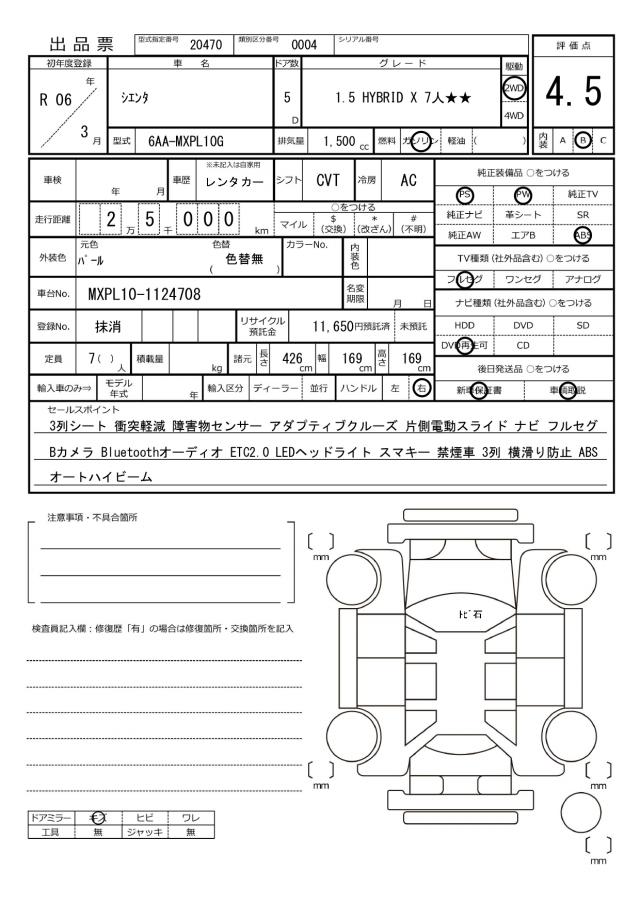 出品票 型式指定番号 20470 類別区分番号 0004 シリアル番号
評価点
4.5
内装 A B C
初年度登録 車名 ドア数 グレード 駆動
R 06 年 3 月 シエンタ 5 D 1.5 HYBRID X 7人★★ 2WD 4WD
型式 6AA-MXPL10G 排気量 1,500 cc 燃料 ガソリン 軽油 ( )
車検 年 月 車歴 ※未記入は自家用 レンタカー シフト CVT 冷房 AC
走行距離 2 万 5 千 0 0 0 km
○をつける
マイル $(交換) *(改ざん) #(不明)
外装色 元色 パール 色替 色替無 ( ) カラーNo. 内装色
車台No. MXPL10-1124708 名変期限 月 日
登録No. 抹消 リサイクル預託金 11,650円預託済 未預託
定員 7( )人 積載量 kg 諸元 長さ 426cm 幅 169cm 高さ 169cm
輸入車のみ⇒ モデル年式 年 輸入区分 ディーラー 並行 ハンドル 左 右
純正装備品 ○をつける
PS PW 純正TV
純正ナビ 革シート SR
純正AW エアB ABS
TV種類(社外品含む)○をつける
フルセグ ワンセグ アナログ
ナビ種類(社外品含む)○をつける
HDD DVD SD
DVD再生可 CD
後日発送品 ○をつける
新車保証書 車輌取説
セールスポイント
3列シート 衝突軽減 障害物センサー アダプティブクルーズ 片側電動スライド ナビ フルセグ
Bカメラ Bluetoothオーディオ ETC2.0 LEDヘッドライト スマキー 禁煙車 3列 横滑り防止 ABS
オートハイビーム
注意事項・不具合箇所
検査員記入欄：修復歴「有」の場合は修復箇所・交換箇所を記入
[ ] mm
[ ] mm
トビ石
[ ] mm
[ ] mm
[ ] mm
ドアミラー キズ ヒビ ワレ
工具 無 ジャッキ 無